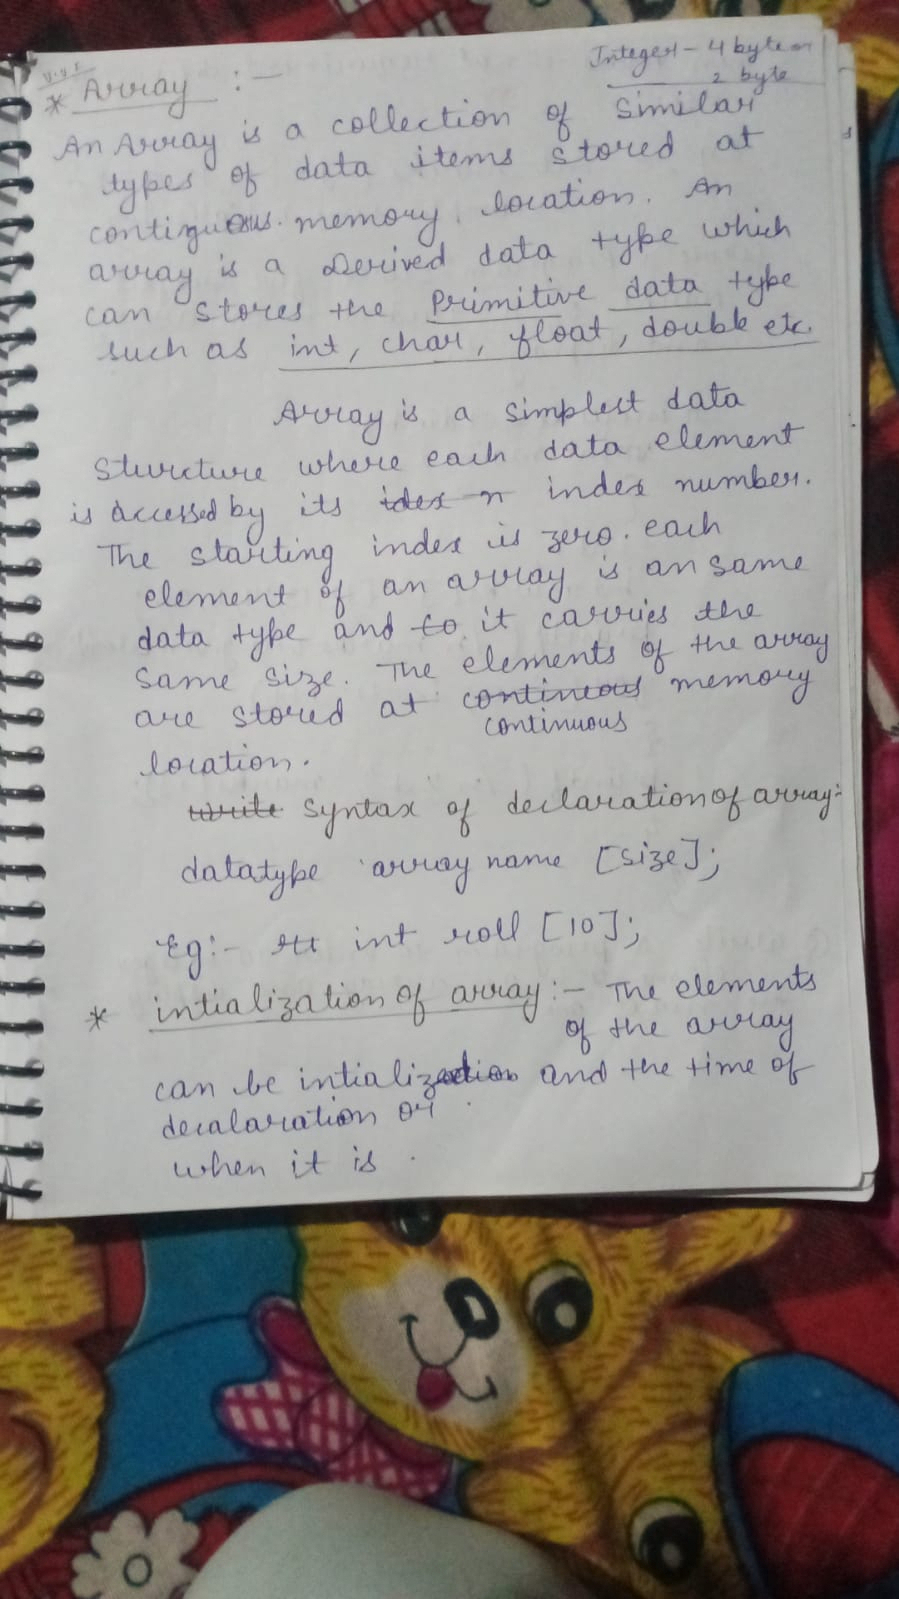 v.v.I
Integer - 4 byte or
2 byte
* Array :-
An Array is a collection of similar
types of data items stored at
contiguous memory location. An
array is a Derived data type which
can stores the Primitive data type
such as int, char, float, double etc.
Array is a simplest data
Structure where each data element
is accessed by its idex n index number.
The starting index is zero. each
element of an array is an same
data type and to it carries the
same size. The elements of the array
are stored at contineous memory
continuous
location.
write Syntax of declaration of array:-
datatype array name [size];
Eg:- int roll [10];
* intialization of array :- The elements
of the array
can be intialization and the time of
decalaration or
when it is .